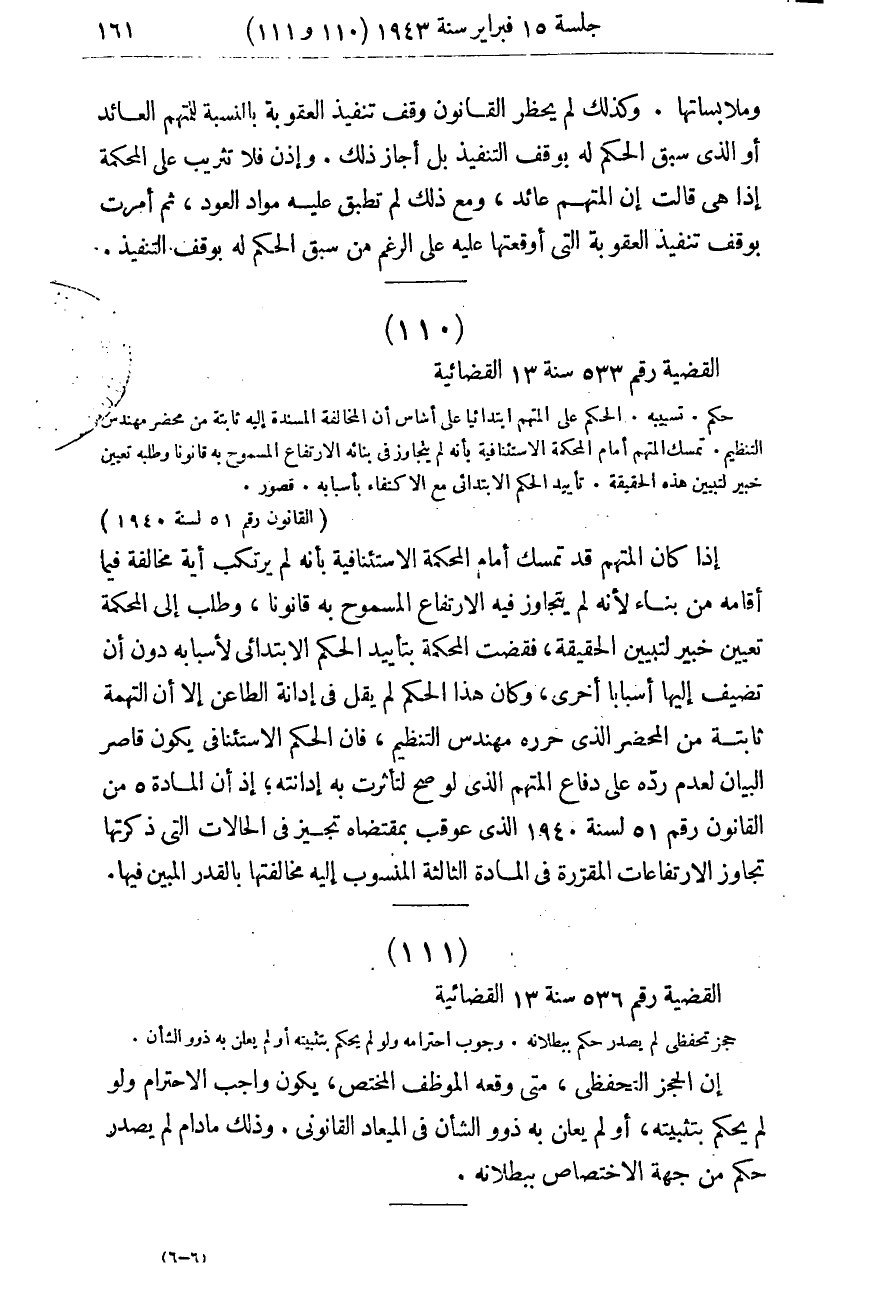 جلسة ١٥ فبراير سنة ١٩٤٣ (١١٠ و ١١١) ١٦١
وملابساتها . وكذلك لم يحظر القانون وقف تنفيذ العقوبة بالنسبة للمتهم العائد
أو الذى سبق الحكم له بوقف التنفيذ بل أجاز ذلك . وإذن فلا تثريب على المحكمة
إذا هى قالت إن المتهم عائد ، ومع ذلك لم تطبق عليه مواد العود ، ثم أمرت
بوقف تنفيذ العقوبة التى أوقعتها عليه على الرغم من سبق الحكم له بوقف التنفيذ .
(١١٠)
القضية رقم ٥٣٣ سنة ١٣ القضائية
حكم . تسبيبه . الحكم على المتهم ابتدائيا على أساس أن المخالفة المسندة إليه ثابتة من محضر مهندس
التنظيم . تمسك المتهم أمام المحكمة الاستئنافية بأنه لم يتجاوز فى بنائه الارتفاع المسموح به قانونا وطلبه تعيين
خبير لتبيين هذه الحقيقة . تأييد الحكم الابتدائى مع الاكتفاء بأسبابه . قصور .
( القانون رقم ٥١ لسنة ١٩٤٠ )
إذا كان المتهم قد تمسك أمام المحكمة الاستئنافية بأنه لم يرتكب أية مخالفة فيما
أقامه من بناء لأنه لم يتجاوز فيه الارتفاع المسموح به قانونا ، وطلب إلى المحكمة
تعيين خبير لتبيين الحقيقة ، فقضت المحكمة بتأييد الحكم الابتدائى لأسبابه دون أن
تضيف إليها أسبابا أخرى ، وكان هذا الحكم لم يقل فى إدانة الطاعن إلا أن التهمة
ثابتة من المحضر الذى حرره مهندس التنظيم ، فان الحكم الاستئنافى يكون قاصر
البيان لعدم ردّه على دفاع المتهم الذى لو صح لتأثرت به إدانته ؛ إذ أن المادة ٥ من
القانون رقم ٥١ لسنة ١٩٤٠ الذى عوقب بمقتضاه تجيز فى الحالات التى ذكرتها
تجاوز الارتفاعات المقرّرة فى المادة الثالثة المنسوب إليه مخالفتها بالقدر المبين فيها .
(١١١)
القضية رقم ٥٣٦ سنة ١٣ القضائية
حجز تحفظى لم يصدر حكم ببطلانه . وجوب احترامه ولو لم يحكم بتثبيته أو لم يعلن به ذوو الشأن .
إن الحجز التحفظى ، متى وقعه الموظف المختص ، يكون واجب الاحترام ولو
لم يحكم بتثبيته ، أو لم يعلن به ذوو الشأن فى الميعاد القانونى . وذلك مادام لم يصدر
حكم من جهة الاختصاص ببطلانه .
(٦-٦)